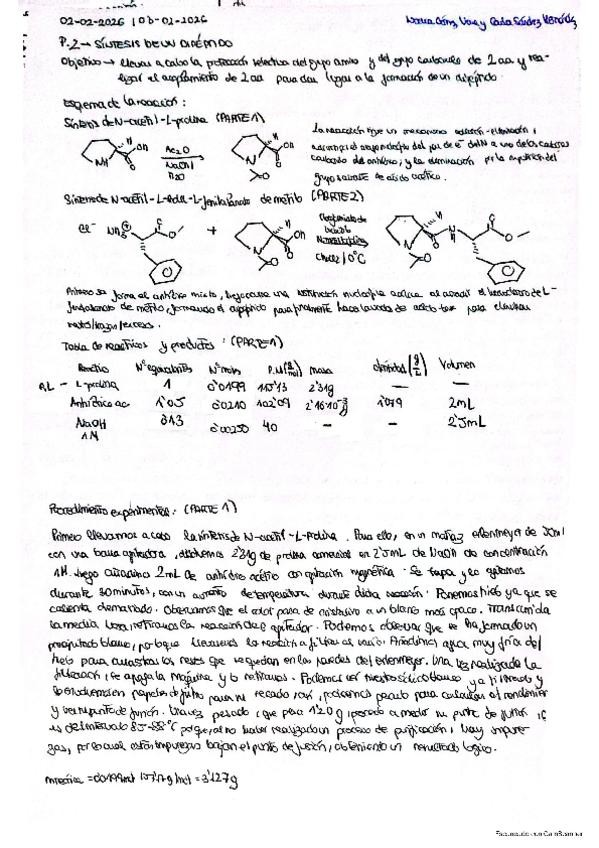 02-02-2026 | 03-02-2026
P.2 → SÍNTESIS DE UN DIPÉPTIDO
Objetivo → llevar a cabo la protección selectiva del grupo amino y del grupo carboxilo de 2 aa y rea-
lizar el acoplamiento de 2 aa para dar lugar a la formación de un dipéptido.
Esquema de la reacción:
Síntesis de N-acetil-L-prolina (PARTE 1)
La reacción sigue un mecanismo adición-eliminación,
del par de e⁻ del N a uno de los carbonos
carbonilo del anhídrido, y la eliminación por la del
grupo saliente de ácido acético.
NH
OH
Ac₂O
NaOH
H₂O
N
OH
Síntesis de N-acetil-L-Prolil-L-fenilalaninato de metilo (PARTE 2)
Cl⁻ NH₃
O
+
N
OH
CHCl₃ / 0°C
Primero se forma el anhídrido mixto, luego ocurre una sustitución nucleófila acílica al añadir el hidrocloruro de L-
fenilalaninato de metilo, formando el dipéptido para finalmente hacer lavados de para eliminar
restos/trazas/excesos.
Tabla de reactivos y productos: (PARTE 1)
Reactivo Nº equivalentes Nº moles P.M (g/mol) masa densidad (g/L) Volumen
L-prolina 1 0'0199 115'13 2'31g — —
Anhídrido ac. 1'05 0'0210 102'09 2'16·10⁻³ g 1'079 2mL
NaOH 1M 0'13 0'00250 40 — — 2'5mL
Procedimiento experimental: (PARTE 1)
Primero llevamos a cabo la síntesis de N-acetil-L-Prolina. Para ello, en un matraz erlenmeyer de 50ml
con una barra agitadora, disolvemos 2'31g de prolina comercial en 2'5mL de NaOH de concentración
1M. Luego añadimos 2mL de anhídrido acético con agitación magnética. Se tapa y lo agitamos
durante 30 minutos, con un aumento de temperatura durante dicha reacción. Ponemos hielo ya que se
calienta demasiado. Observamos que el color pasa de amarillo a un blanco más opaco. Transcurrida
la media hora, retiramos la reacción del agitador. Podemos observar que se ha formado un
precipitado blanco, por lo que llevamos la reacción a filtrar al vacío. Añadimos agua muy fría del
hielo para arrastrar los restos que se quedan en las paredes del erlenmeyer. Una vez realizada la
filtración, se apaga la máquina y lo retiramos. Podemos ver nuestro sólido blanco ya filtrado y
lo envolvemos en papeles de filtro para su secado , podemos pesarlo para calcular el rendimiento
y ver su punto de fusión. Una vez pesado, que pesa 1'20g, pasamos a medir su punto de fusión, que
es del intervalo 85-88°C porque, al no haber realizado un proceso de purificación, hay impure-
zas, por lo cual estas impurezas bajan el punto de fusión, obteniendo un resultado lógico.
m teórica = 0'0199mol · 157'17 g/mol = 3'127g
Escaneado con CamScanner